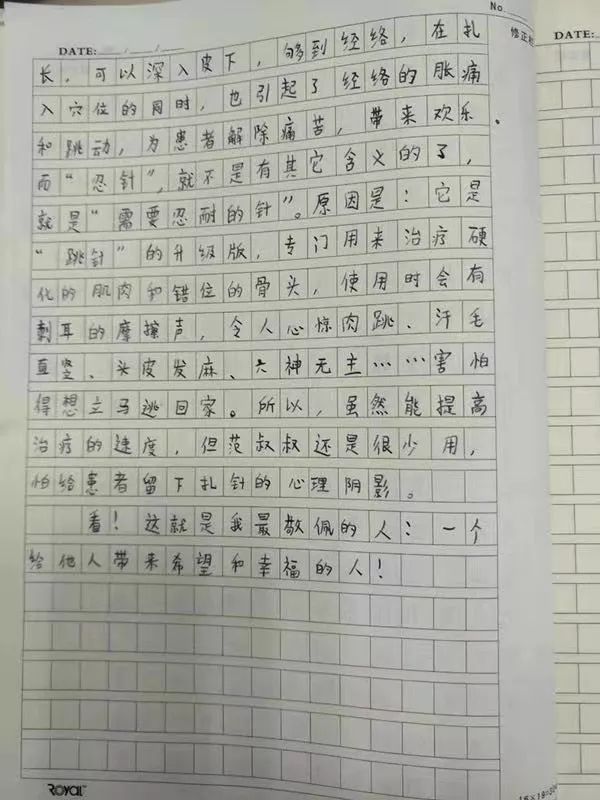 No.
DATE: / /
修正栏
长，可以深入皮下，够到经络，在扎
入穴位的同时，也引起了经络的胀痛
和跳动，为患者解除痛苦，带来欢乐。
而“忍针”，就不是有其它含义的了，
就是“需要忍耐的针”。原因是：它是
“跳针”的升级版，专门用来治疗硬
化的肌肉和错位的骨头，使用时会有
刺耳的摩擦声，令人心惊肉跳、汗毛
直竖、头皮发麻、六神无主……害怕
得想立马逃回家。所以，虽然能提高
治疗的速度，但范叔叔还是很少用，
怕给患者留下扎针的心理阴影。
看！这就是我最敬佩的人：一个
给他人带来希望和幸福的人！
ROYAL